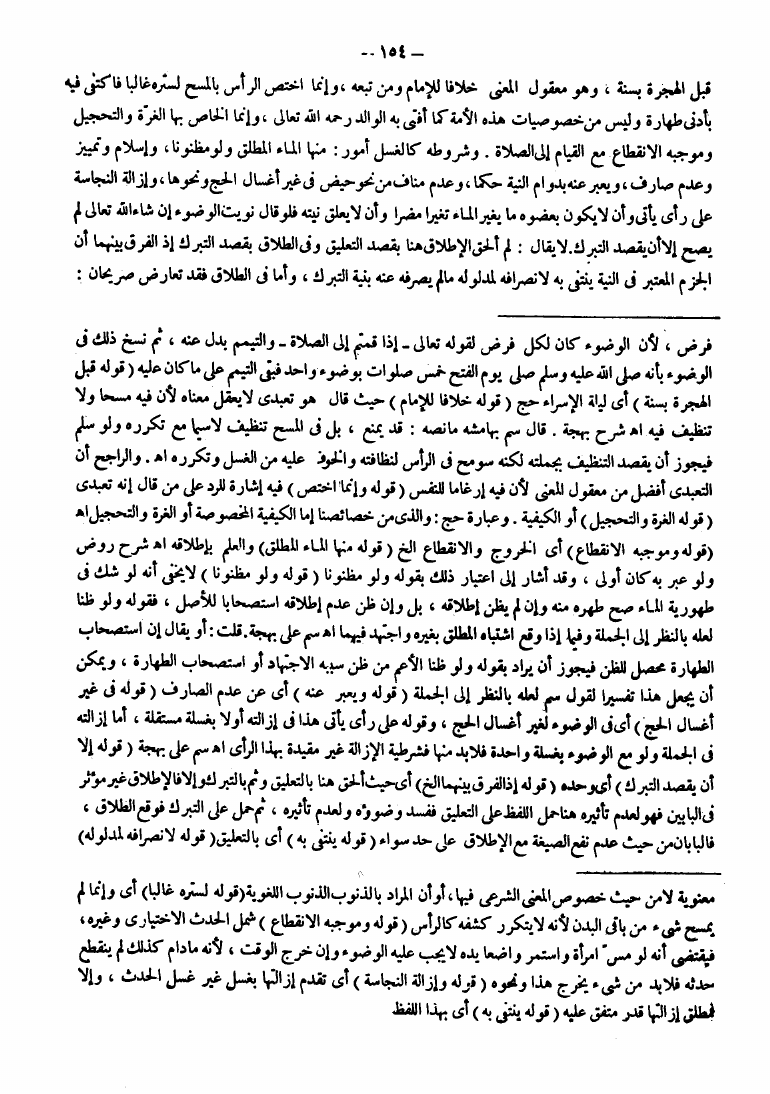 — ١٥٤ —
قبل الهجرة بسنة ، وهو معقول المعنى خلافا للإمام ومن تبعه ، وإنما اختص الرأس بالمسح لستره غالبا فاكتفى فيه
بأدنى طهارة وليس من خصوصيات هذه الأمة كما أفتى به الوالد رحمه الله تعالى ، وإنما الخاص بها الغرّة والتحجيل
وموجبه الانقطاع مع القيام إلى الصلاة . وشروطه كالغسل أمور : منها الماء المطلق ولو مظنونا ، وإسلام وتمييز
وعدم صارف ، ويعبر عنه بدوام النية حكما ، وعدم مناف من نحو حيض فى غير أغسال الحج ونحوها ، وإزالة النجاسة
على رأى يأتى وأن لا يكون بعضوه ما يغير الماء تغيرا مضرا وأن لا يعلق نيته فلو قال نويت الوضوء إن شاء الله تعالى لم
يصح إلا أن يقصد التبرك . لا يقال : لم ألحق الإطلاق هنا بقصد التعليق وفى الطلاق بقصد التبرك إذ الفرق بينهما أن
الجزم المعتبر فى النية ينتفى به لانصرافه لمدلوله مالم يصرفه عنه بنية التبرك ، وأما فى الطلاق فقد تعارض صريحان :
فرض ، لأن الوضوء كان لكل فرض لقوله تعالى ـ إذا قمتم إلى الصلاة ـ والتيمم بدل عنه ، ثم نسخ ذلك فى
الوضوء بأنه صلى الله عليه وسلم صلى يوم الفتح خمس صلوات بوضوء واحد فبقى التيمم على ما كان عليه ( قوله قبل
الهجرة بسنة ) أى ليلة الإسراء حج ( قوله خلافا للإمام ) حيث قال هو تعبدى لا يعقل معناه لأن فيه مسحا ولا
تنظيف فيه اه شرح بهجة . قال سم بهامشه مانصه : قد يمنع ، بل فى المسح تنظيف لاسيما مع تكرره ولو سلم
فيجوز أن يقصد التنظيف بجملته لكنه سومح فى الرأس لنظافته والخوف عليه من الغسل وتكرره اه . والراجح أن
التعبدى أفضل من معقول المعنى لأن فيه إرغاما للنفس ( قوله وإنما اختص ) فيه إشارة للرد على من قال إنه تعبدى
( قوله الغرة والتحجيل ) أو الكيفية . وعبارة حج : والذى من خصائصنا إما الكيفية المخصوصة أو الغرة والتحجيل اه
( قوله وموجبه الانقطاع ) أى الخروج والانقطاع الخ ( قوله منها الماء المطلق ) والعلم بإطلاقه اه شرح روض
ولو عبر به كان أولى ، وقد أشار إلى اعتبار ذلك بقوله ولو مظنونا ( قوله ولو مظنونا ) لا يخفى أنه لو شك فى
طهورية الماء صح طهره منه وإن لم يظن إطلاقه ، بل وإن ظن عدم إطلاقه استصحابا للأصل ، فقوله ولو ظنا
لعله بالنظر إلى الجملة وفيما إذا وقع اشتباه المطلق بغيره واجتهد فيهما اه سم على بهجة . قلت : أو يقال إن استصحاب
الطهارة محصل للظن فيجوز أن يراد بقوله ولو ظنا الأعم من ظن سببه الاجتهاد أو استصحاب الطهارة ، ويمكن
أن يجعل هذا تفسيرا لقول سم لعله بالنظر إلى الجملة ( قوله ويعبر عنه ) أى عن عدم الصارف ( قوله فى غير
أغسال الحج ) أى فى الوضوء لغير أغسال الحج ، وقوله على رأى يأتى هذا فى إزالته أولا بغسلة مستقلة ، أما إزالته
فى الجملة ولو مع الوضوء بغسلة واحدة فلا بد منها فشرطية الإزالة غير مقيدة بهذا الرأى اه سم على بهجة ( قوله إلا
أن يقصد التبرك ) أى وحده ( قوله إذ الفرق بينهما الخ ) أى حيث ألحق هنا بالتعليق وثم بالتبرك وإلا فالإطلاق غير مؤثر
فى البابين فهو لعدم تأثيره هنا حمل اللفظ على التعليق ففسد وضوؤه ولعدم تأثيره ، ثم حمل على التبرك فوقع الطلاق ،
فالبابان من حيث عدم نفع الصيغة مع الإطلاق على حد سواء ( قوله ينتفى به ) أى بالتعليق ( قوله لانصرافه لمدلوله )
معنوية لا من حيث خصوص المعنى الشرعى فيها ، أو أن المراد بالذنوب الذنوب اللغوية ( قوله لستره غالبا ) أى وإنما لم
يمسح شىء من باقى البدن لأنه لا يتكرر كشفه كالرأس ( قوله وموجبه الانقطاع ) شمل الحدث الاختيارى وغيره ،
فيقتضى أنه لو مس امرأة واستمر واضعا يده لا يجب عليه الوضوء وإن خرج الوقت ، لأنه مادام كذلك لم ينقطع
حدثه فلا بد من شىء يخرج هذا ونحوه ( قوله وإزالة النجاسة ) أى تقدم إزالتها بغسل غير غسل الحدث ، وإلا
فمطلق إزالتها قدر متفق عليه ( قوله ينتفى به ) أى بهذا اللفظ